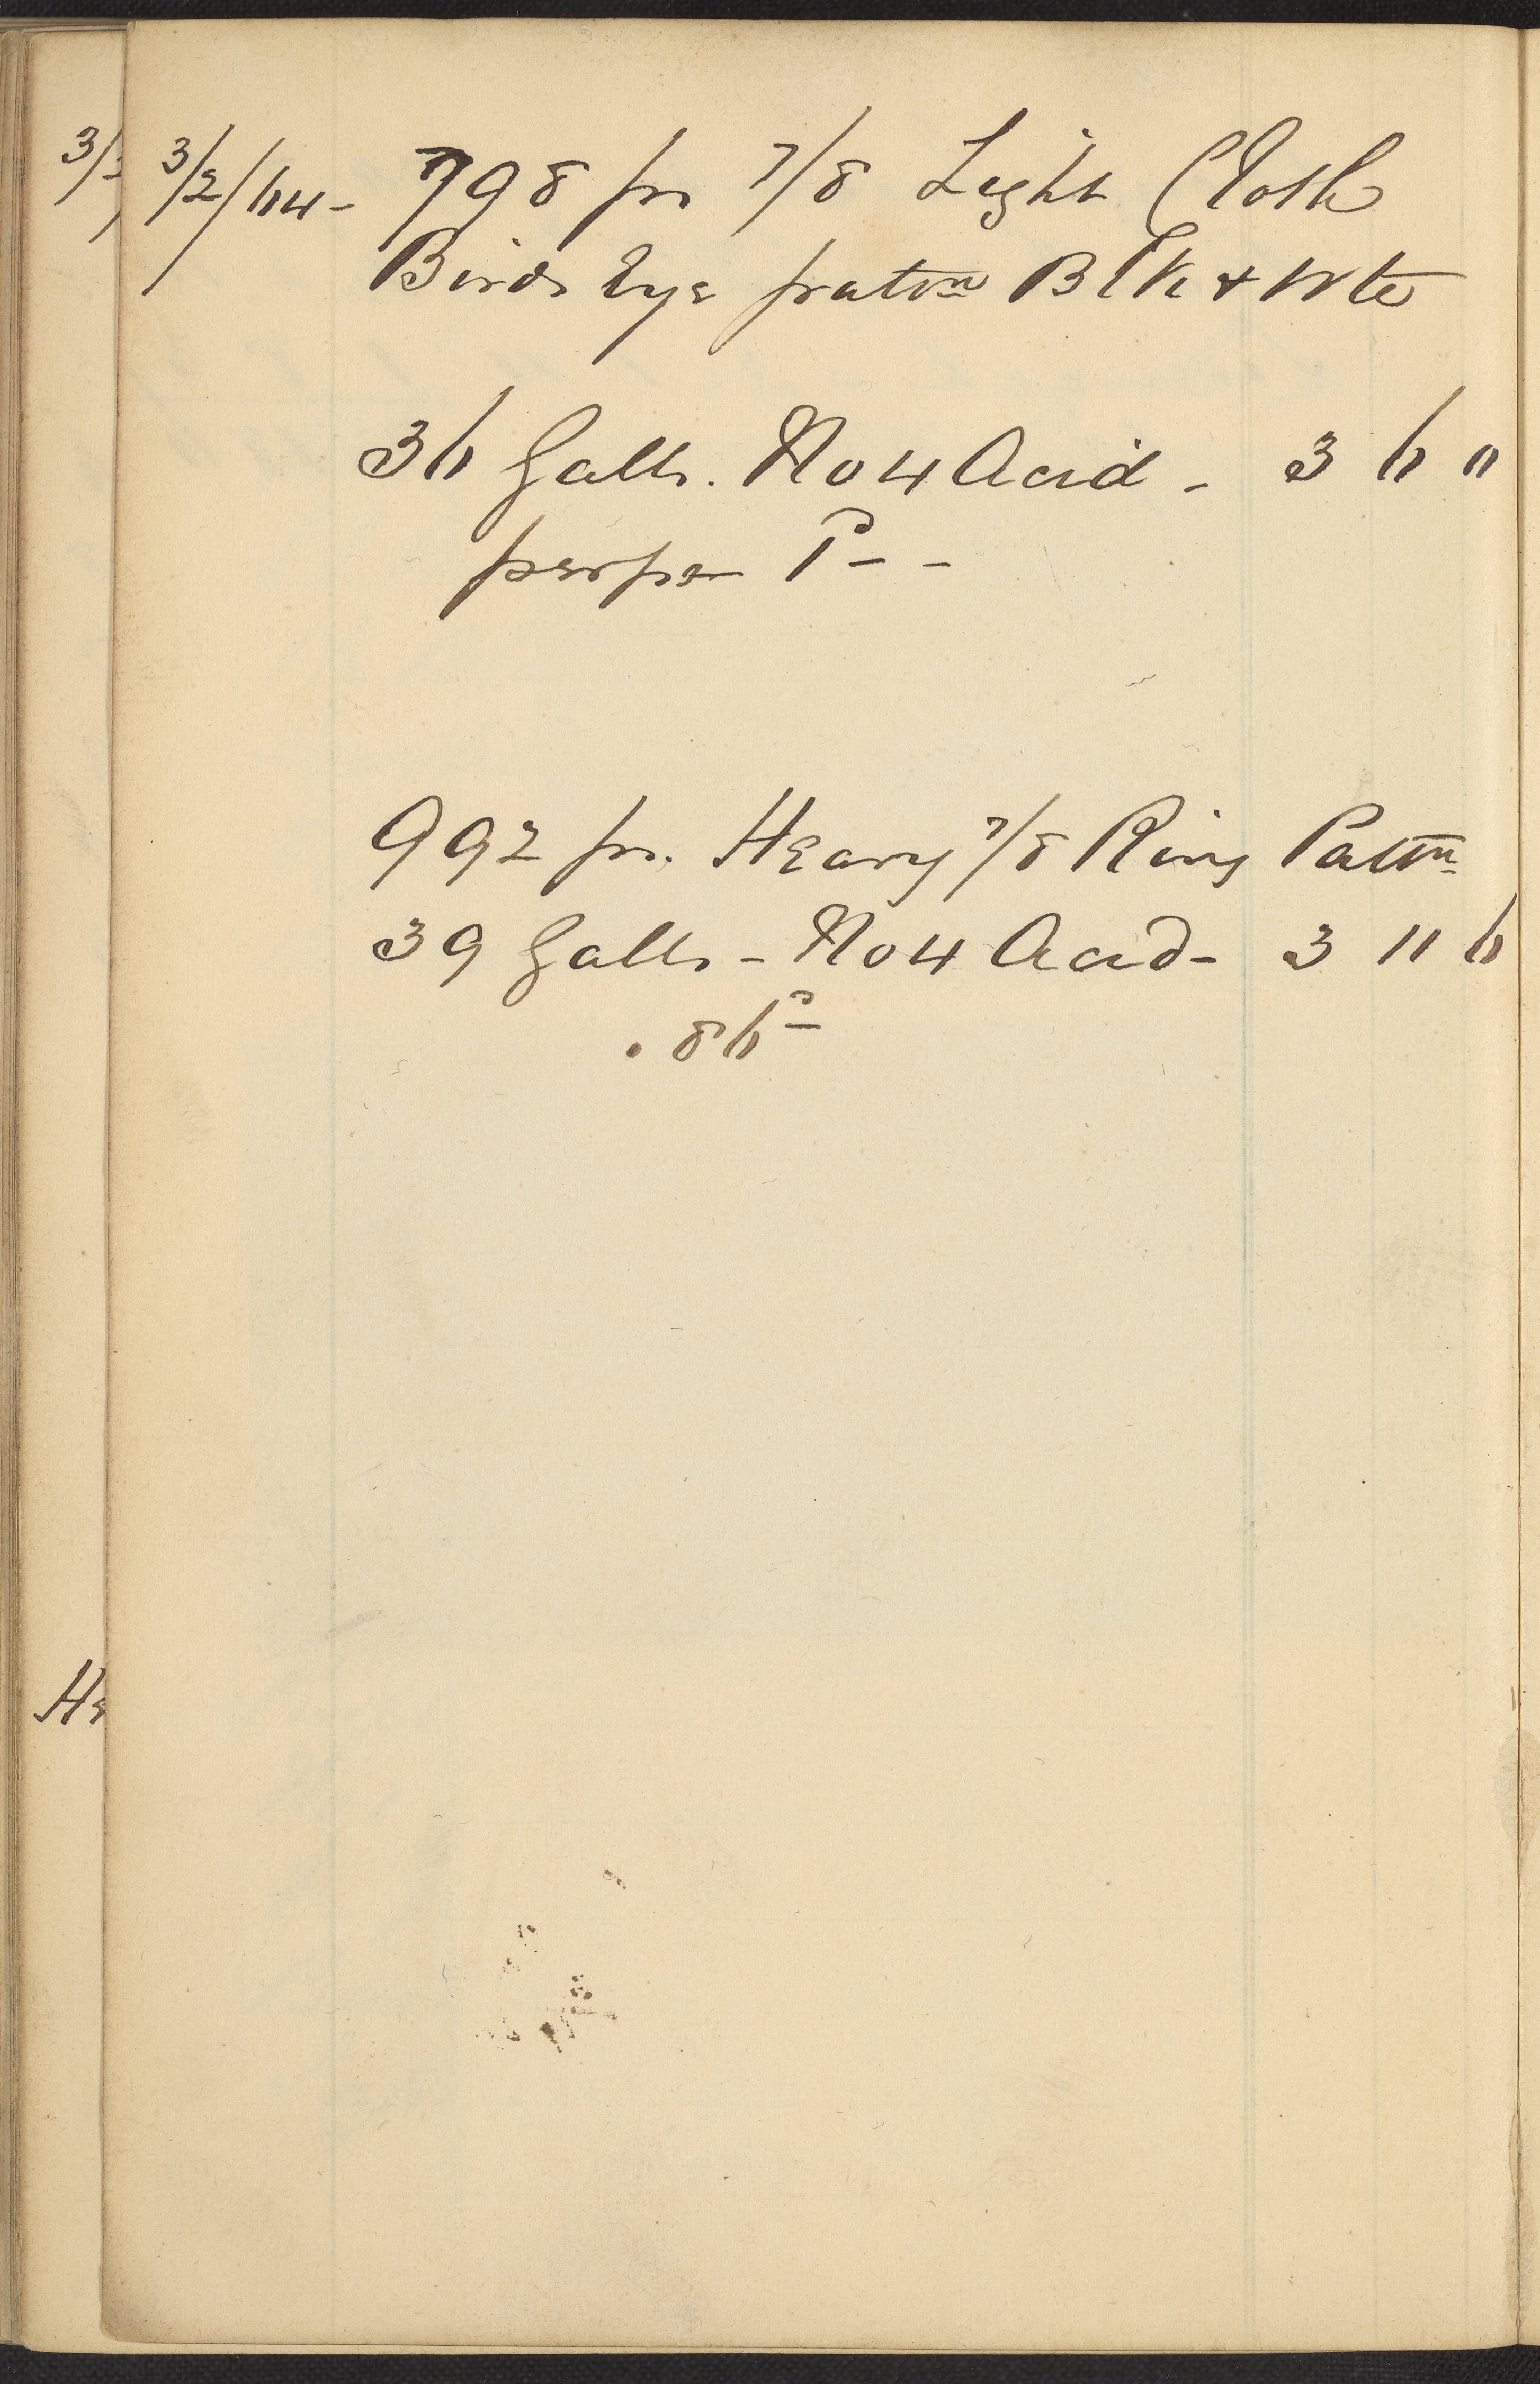 3/2/64 - 798 ps 7/8 Light Cloth
Birds Eye pattn Blk & Wte
36 Galls. No 4 Acid - 3 6 "
per pce 1d - -
992 ps. Heavy 7/8 Ring Pattn
39 Galls - No 4 Acid - 3 11 6
. 86
3/
He